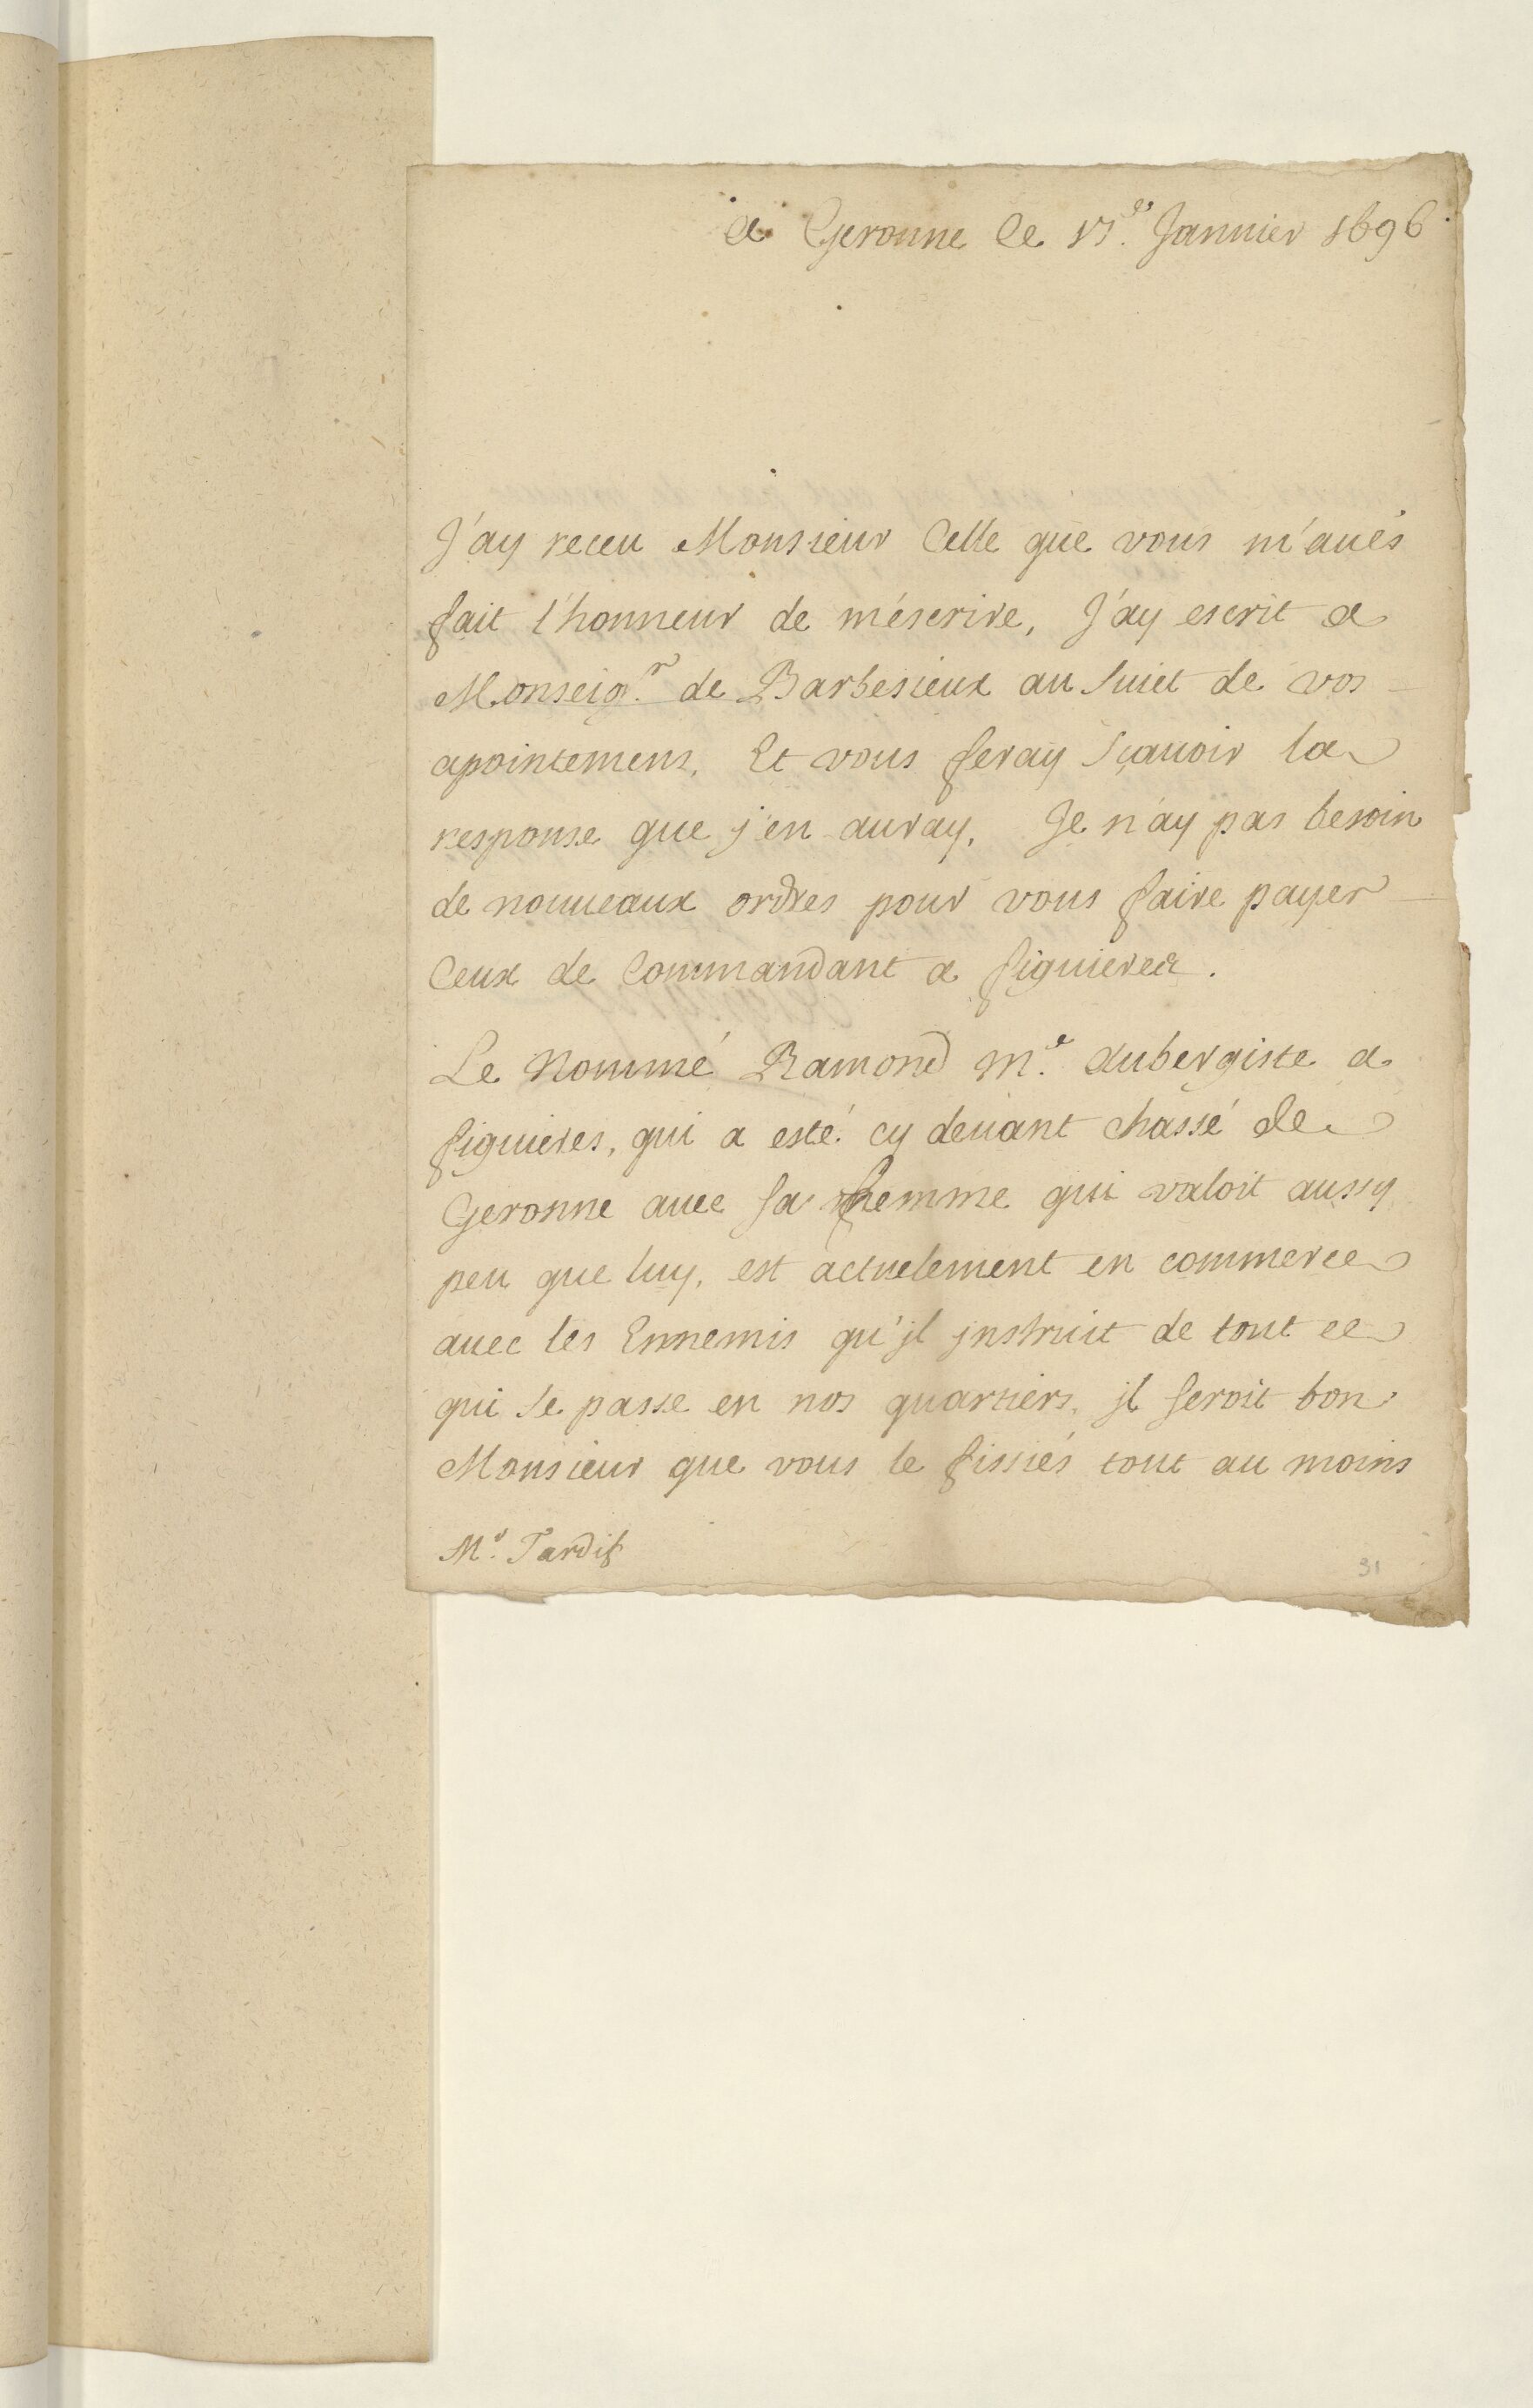 a Geronne le 15.es Januier 1696
J'ay receu Monsieur Celle que vous m'aués
fait l'honneur de m'éscrire, J'ay escrit a
Monseig.r de Barbesieux au Suiet de vos
apointemens, Et vous feray Sçauoir la
response que j'en auray. Je n'ay pas besoin
de nouueaux ordres pour vous faire payer
Ceux de Commandant a figuieres.
Le Nommé Ramond M.e aubergiste a
figuieres, qui a esté cy deuant chassé de
Geronne auec sa femme qui valoit aussy
peu que luy, est actuelement en commerce
auec les Ennemis qu'jl jnstruit de tout ce
qui Se passe en nos quartiers, jl seroit bon
Monsieur que vous le fissiés tout au moins
M.r Tardif
31